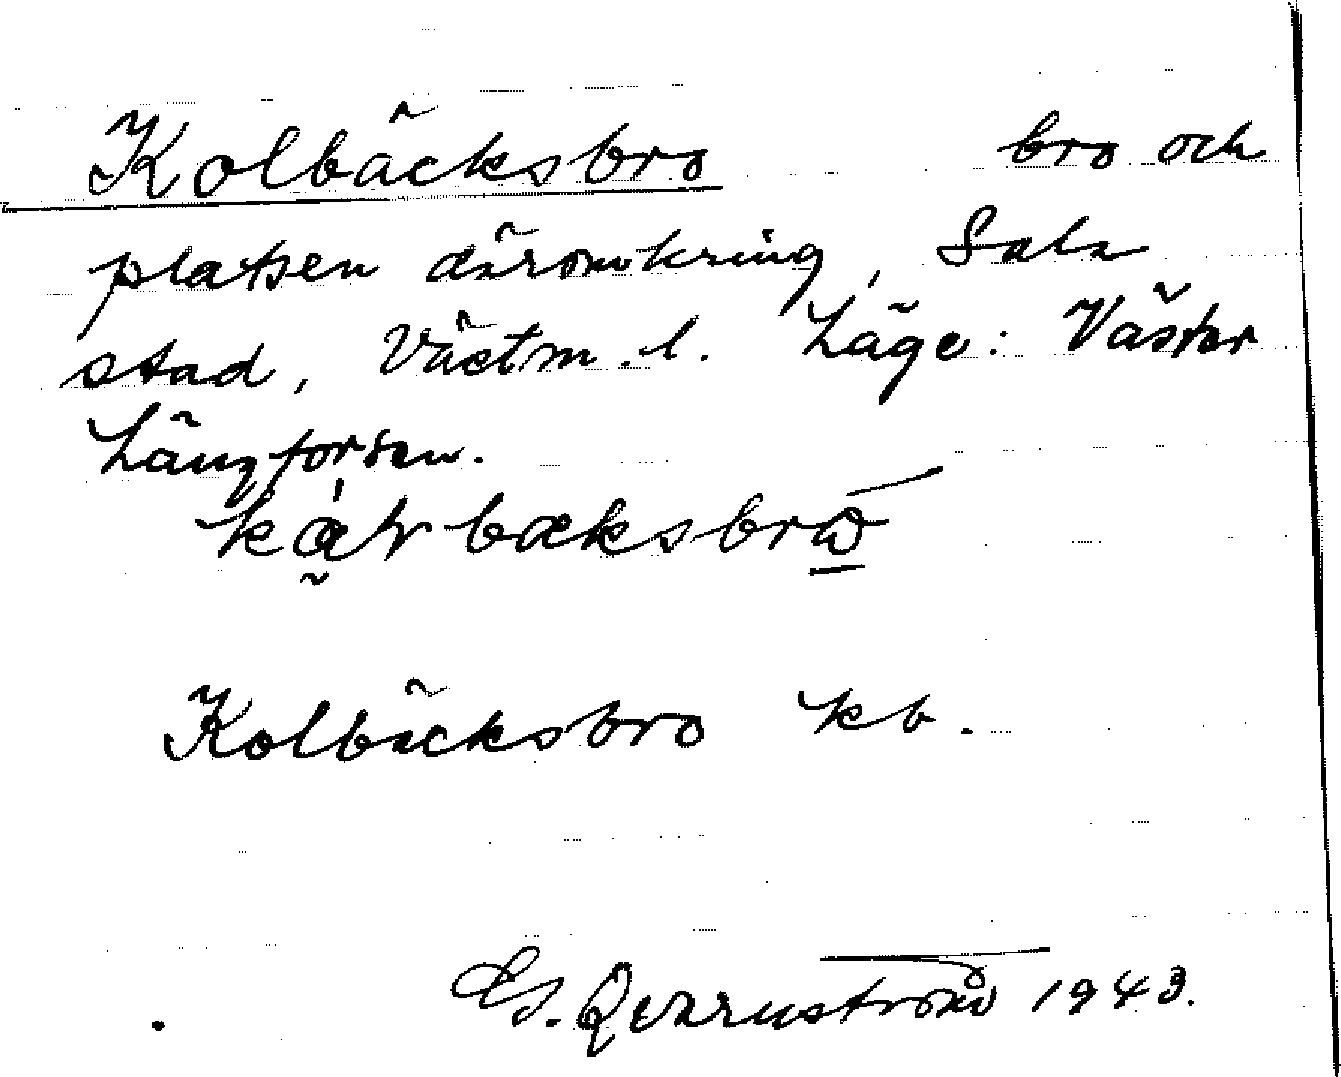 Kolbäcksbro bro och
platsen däromkring, Sala
stad, Västm. l. Läge: Väster
Långforsen.
Kolbäcksbro kb.
G. Qvarnström 1943.